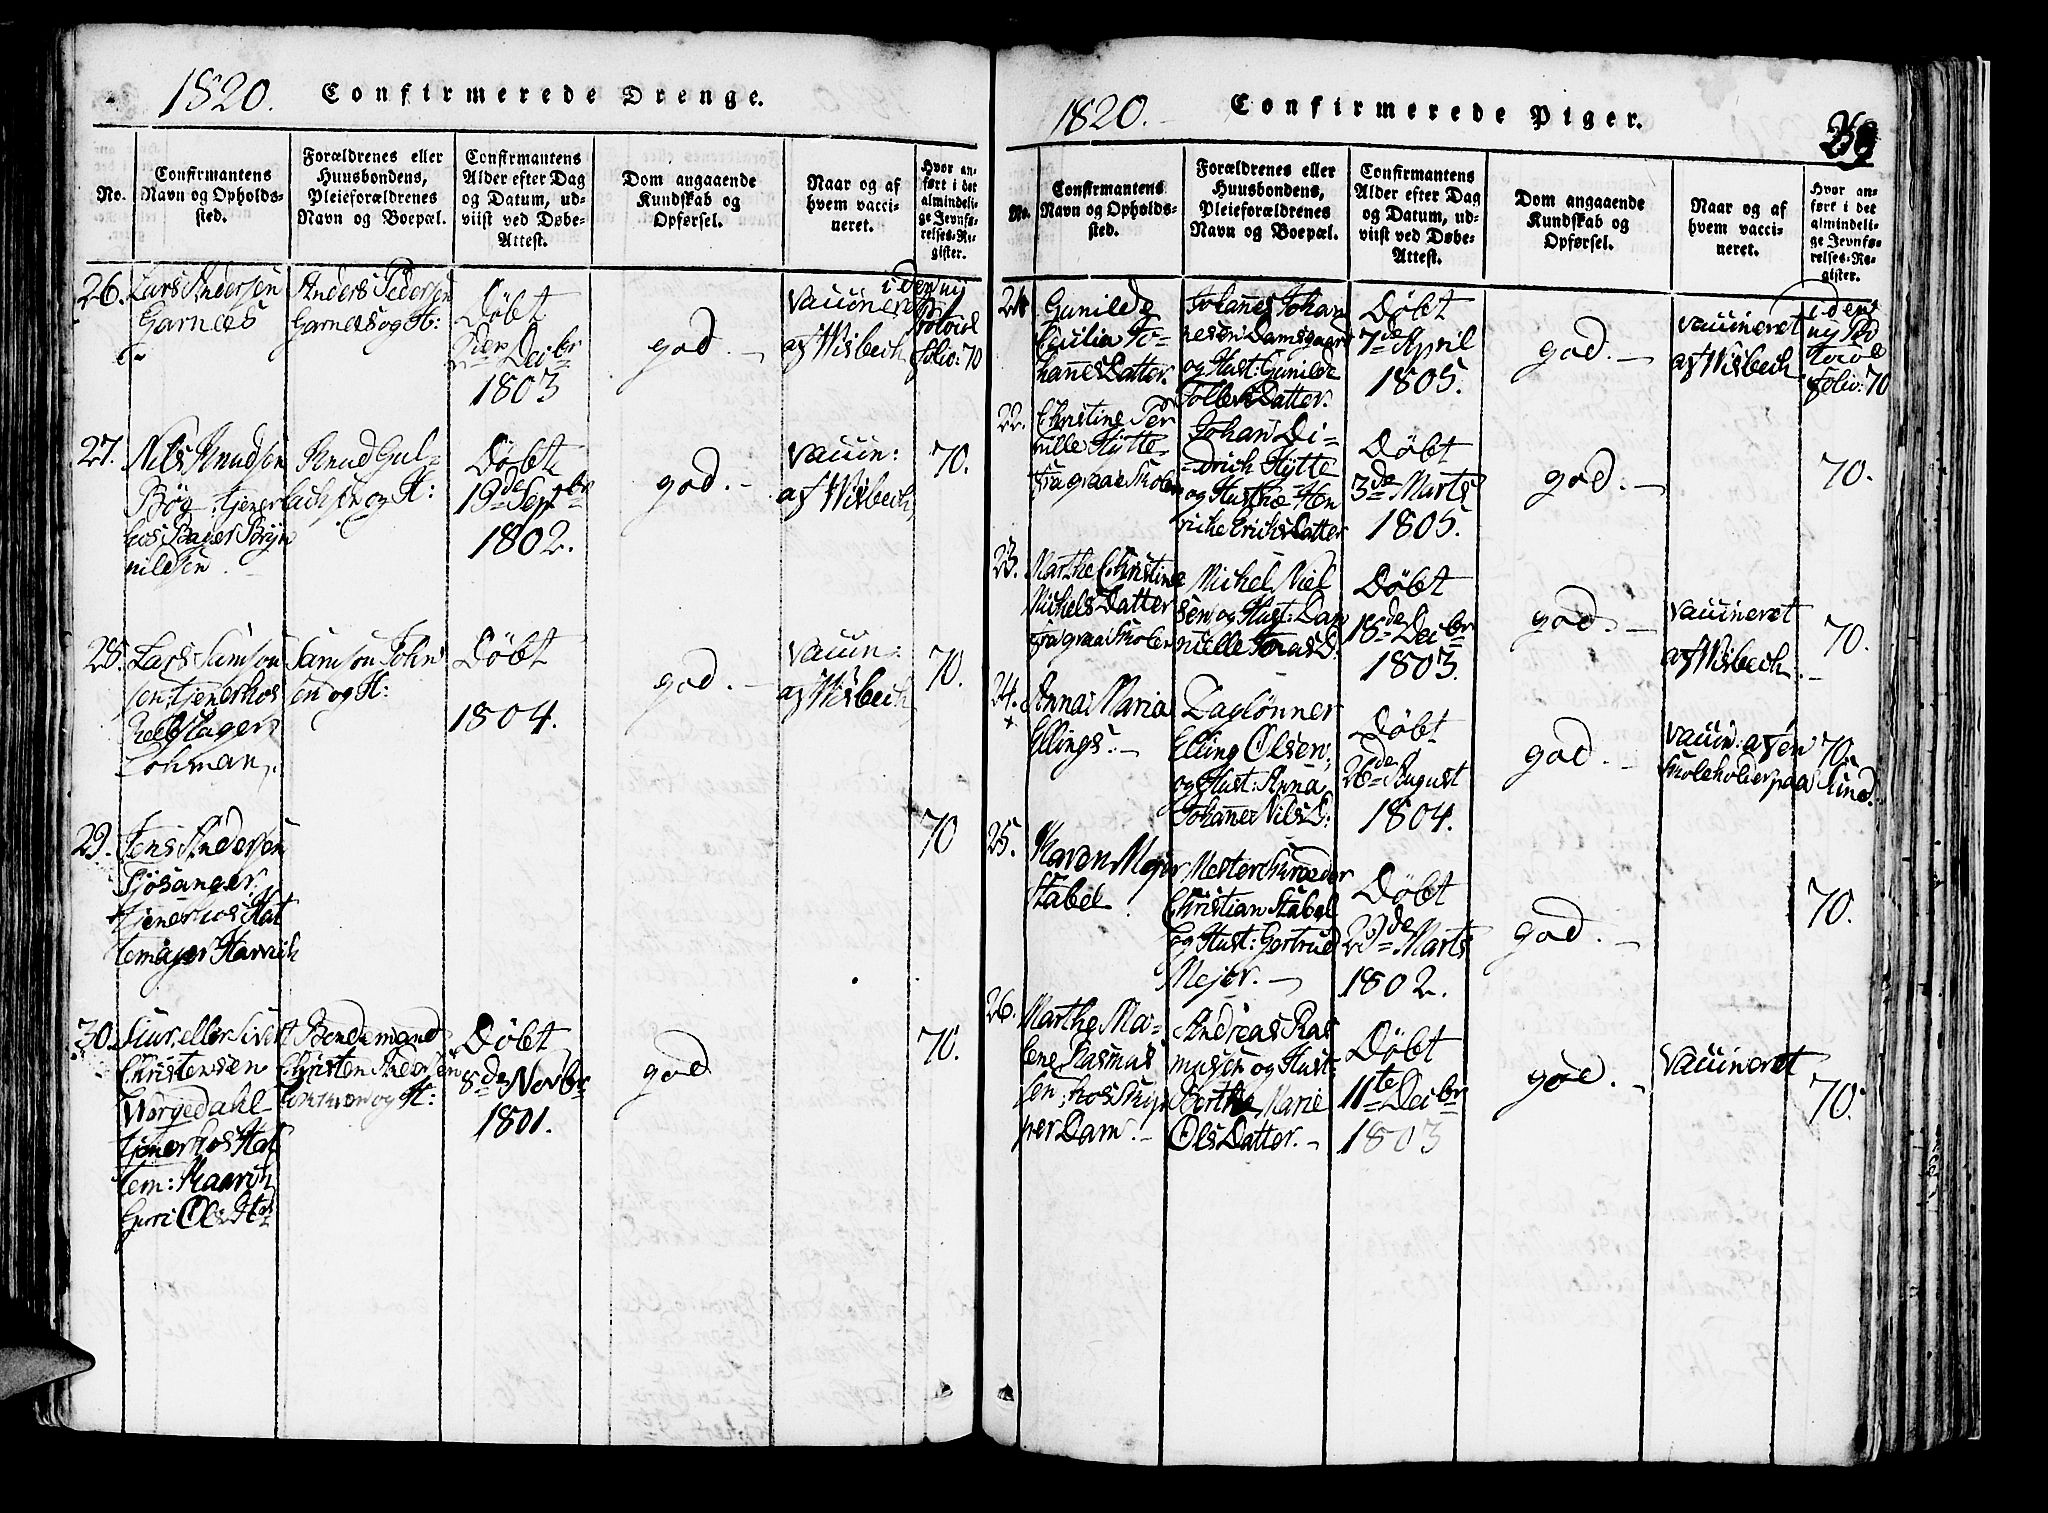 1820. Confirmerede Drenge.
No.
Confirmantens
Navn og Opholds-
sted.
Forældrenes eller
Huusbondens,
Pleieforældrenes
Navn og Boepæl.
Confirmantens
Alder efter Dag
og Datum, ud-
viist ved Døbe-
Attest.
Dom angaaende
Kundskab og
Opførsel.
Naar og af
hvem vacci-
neret.
Hvor an-
ført i det
almindeli-
ge Jevnfø-
relses-Re-
gister.
26.
Lars Andersen
Garnæs
Anders Pedersen
Garnæs og H:
Døbt
Decbr
1803
god.
Vaccineret
af Wisbech
i den ny
Folio: 70
27.
Nils Knudsen
Bøg tjener
hos Bager Bryn
nildsen
Knud Gul-
og H:
Døbt
19de Septbr
1802.
god.
Vaccin:
af Wisbech
70.
28.
Lars Samson
sen: tjener hos
Rebslager
Lohman.
Samson John
sen og H:
Døbt
1804.
god.
Vaccin:
af Wisbech
70.
29.
Jens Andersen
Fjøsanger
tjener hos Kat
temager Harvich
70
30.
Siur eller Sivert
Christensen
Norgedahl
tjener hos Kat
tem: Kaarsh
Bondemand
Christen Andersen
og H:
Døbt
8de Novbr
1801.
god
70.
1820. Confirmerede Piger.
No.
Confirmantens
Navn og Opholds-
sted.
Forældrenes eller
Huusbondens,
Pleieforældrenes
Navn og Boepæl.
Confirmantens
Alder efter Dag
og Datum, ud-
viist ved Døbe-
Attest.
Dom angaaende
Kundskab og
Opførsel.
Naar og af
hvem vacci-
neret.
Hvor an-
ført i det
almindeli-
ge Jevnfø-
relses-Re-
gister.
21
Gunilde
Cicilia Jo-
hannes Datter.
Johannes Johan
nesen Damsgaard
og Hust: Gunilde
Tollev Datter.
Døbt
7de April
1805.
god.
Vaccineret
af Wisbech
i den
ny Pro
tocol
folio: 70
22.
Christine Per
nille Hytte
fra graae Skolen
Johan Di-
-drich Hytte
og Hustrue Hen
riche Erichs Datter
Døbt
3de Marts
1805.
god.
70.
23.
Marthe Christine
Michels Datter
fra graae Skolen
Michel Niel
sen og Hust: Dan
nielle Jonas D.
Døbt
18de Decbr
1803.
god.
Vaccineret
af Wisbech.
70.
24.
Anna Maria
Ellings.
Daglønner
Elling Olsen,
og Hust: Anna
Johanne Nils D:
Døbt
26de August
1804.
god.
Vaccin: af en
Skoleholder paa Sund.
70.
25.
Karen Mejer
Stabel
Mester Skræder
Christian Stabel
og Hust: Gertrud
Mejer.
Døbt
23de Marts
1802.
god.
70.
26.
Marthe Ma-
lene Rasmus
sen, hos Skip
per Dam.
Andreas Ras
musen og Hust:
Berthe Marie
Ols Datter.
Døbt
11te Decbr
1803
god.
Vaccineret
70.